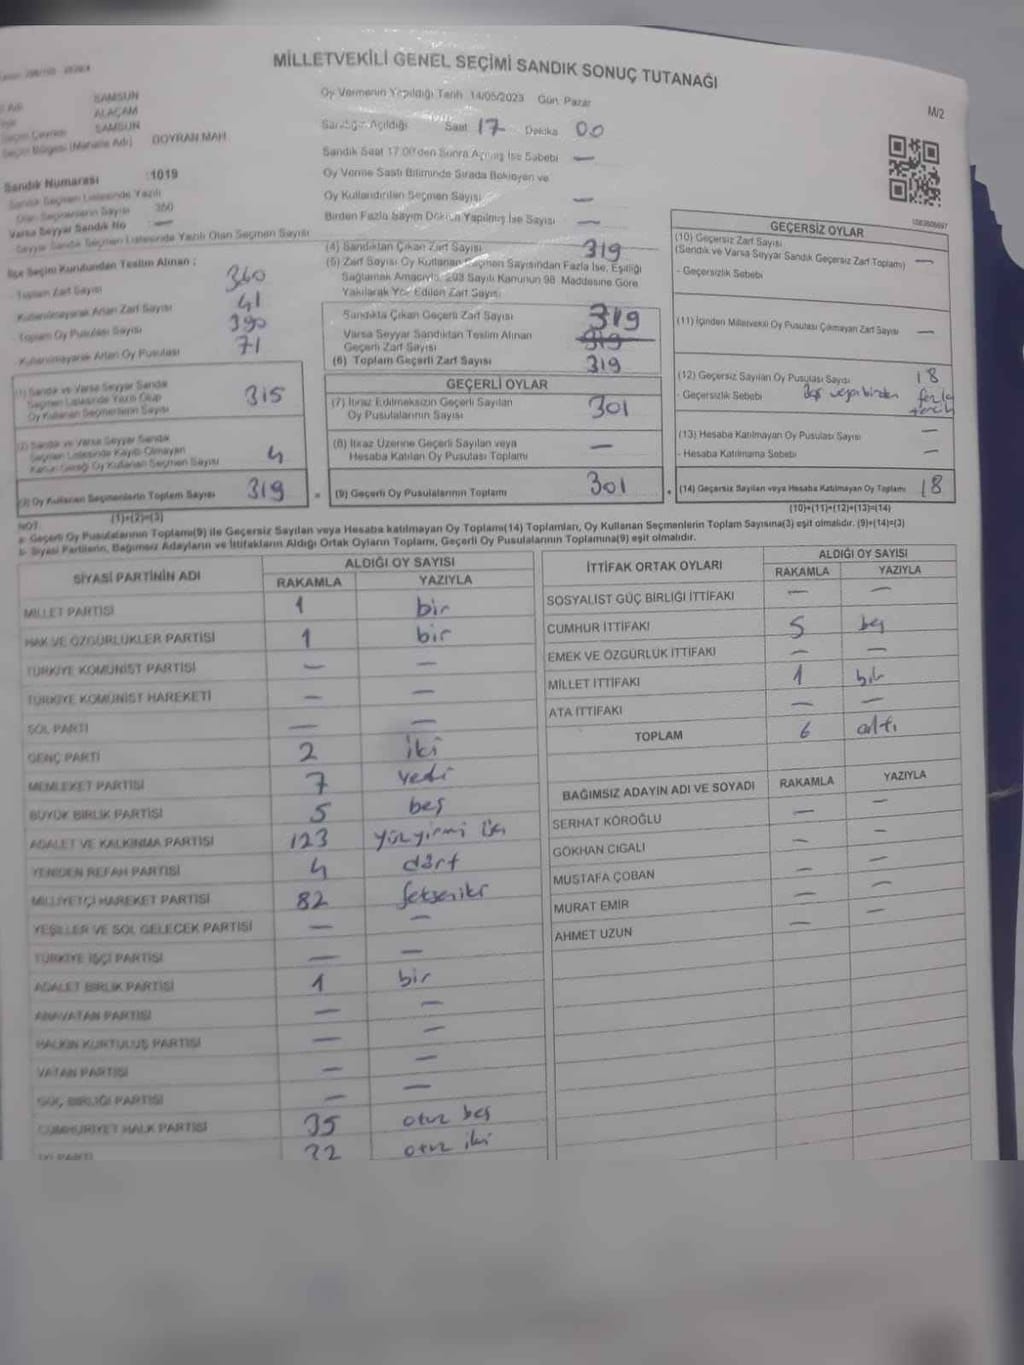 MİLLETVEKİLİ GENEL SEÇİMİ SANDIK SONUÇ TUTANAĞI
M/2
SAMSUN
ALAÇAM
SAMSUN
Oy Vermenin Yapıldığı Tarih 14/05/2023 Gün Pazar
Sandığın Açıldığı Saat 17 Dakika 00
Seçim Bölgesi (Mahalle Adı) DOYRAN MAH
Sandık Saat 17:00'den Sonra Açılmış İse Sebebi —
Oy Verme Saati Bitiminde Sırada Bekleyen ve
Oy Kullandırılan Seçmen Sayısı —
Birden Fazla Sayım Döküm Yapılmış İse Sayısı —
Sandık Numarası :1019
Sandık Seçmen Listesinde Yazılı
Olan Seçmenlerin Sayısı 360
Varsa Seyyar Sandık No —
Seyyar Sandık Seçmen Listesinde Yazılı Olan Seçmen Sayısı
İlçe Seçim Kurulundan Teslim Alınan :
- Toplam Zarf Sayısı 360
- Kullanılmayarak Artan Zarf Sayısı 41
- Toplam Oy Pusulası Sayısı 390
- Kullanılmayarak Artan Oy Pusulası 71
(1) Sandık ve Varsa Seyyar Sandık
Seçmen Listesinde Yazılı Olup
Oy Kullanan Seçmenlerin Sayısı 315
(2) Sandık ve Varsa Seyyar Sandık
Seçmen Listesinde Kayıtlı Olmayan
Kanun Gereği Oy Kullanan Seçmen Sayısı 4
(3) Oy Kullanan Seçmenlerin Toplam Sayısı 319
(1)+(2)=(3)
(4) Sandıktan Çıkan Zarf Sayısı 319
(5) Zarf Sayısı Oy Kullanan Seçmen Sayısından Fazla İse, Eşitliği
Sağlamak Amacıyla, 298 Sayılı Kanunun 98. Maddesine Göre
Yakılarak Yok Edilen Zarf Sayısı
Sandıkta Çıkan Geçerli Zarf Sayısı 319
Varsa Seyyar Sandıktan Teslim Alınan
Geçerli Zarf Sayısı 319
(6) Toplam Geçerli Zarf Sayısı 319
GEÇERLİ OYLAR
(7) İtiraz Edilmeksizin Geçerli Sayılan
Oy Pusulalarının Sayısı 301
(8) İtiraz Üzerine Geçerli Sayılan veya
Hesaba Katılan Oy Pusulası Toplamı —
(9) Geçerli Oy Pusulalarının Toplamı 301
GEÇERSİZ OYLAR
(10) Geçersiz Zarf Sayısı
(Sandık ve Varsa Seyyar Sandık Geçersiz Zarf Toplamı) —
- Geçersizlik Sebebi
(11) İçinden Milletvekili Oy Pusulası Çıkmayan Zarf Sayısı —
(12) Geçersiz Sayılan Oy Pusulası Sayısı 18
- Geçersizlik Sebebi Boş veya birden fazla tercih
(13) Hesaba Katılmayan Oy Pusulası Sayısı —
- Hesaba Katılmama Sebebi
(14) Geçersiz Sayılan veya Hesaba Katılmayan Oy Toplamı 18
(10)+(11)+(12)+(13)=(14)
NOT:
a- Geçerli Oy Pusulalarının Toplamı(9) ile Geçersiz Sayılan veya Hesaba katılmayan Oy Toplamı(14) Toplamları, Oy Kullanan Seçmenlerin Toplam Sayısına(3) eşit olmalıdır. (9)+(14)=(3)
b- Siyasi Partilerin, Bağımsız Adayların ve İttifakların Aldığı Ortak Oyların Toplamı, Geçerli Oy Pusulalarının Toplamına(9) eşit olmalıdır.
SİYASİ PARTİNİN ADI ALDIĞI OY SAYISI
RAKAMLA YAZIYLA
MİLLET PARTİSİ 1 bir
HAK VE ÖZGÜRLÜKLER PARTİSİ 1 bir
TÜRKİYE KOMÜNİST PARTİSİ — —
TÜRKİYE KOMÜNİST HAREKETİ — —
SOL PARTİ — —
GENÇ PARTİ 2 iki
MEMLEKET PARTİSİ 7 yedi
BÜYÜK BİRLİK PARTİSİ 5 beş
ADALET VE KALKINMA PARTİSİ 123 yüzyirmi üç
YENİDEN REFAH PARTİSİ 4 dört
MİLLİYETÇİ HAREKET PARTİSİ 82 sekseniki
YEŞİLLER VE SOL GELECEK PARTİSİ — —
TÜRKİYE İŞÇİ PARTİSİ — —
ADALET BİRLİK PARTİSİ 1 bir
ANAVATAN PARTİSİ — —
HALKIN KURTULUŞ PARTİSİ — —
VATAN PARTİSİ — —
GÜÇ BİRLİĞİ PARTİSİ — —
CUMHURİYET HALK PARTİSİ 35 otuz beş
İYİ PARTİ 32 otuz iki
İTTİFAK ORTAK OYLARI ALDIĞI OY SAYISI
RAKAMLA YAZIYLA
SOSYALİST GÜÇ BİRLİĞİ İTTİFAKI — —
CUMHUR İTTİFAKI 5 beş
EMEK VE ÖZGÜRLÜK İTTİFAKI — —
MİLLET İTTİFAKI 1 bir
ATA İTTİFAKI — —
TOPLAM 6 altı
BAĞIMSIZ ADAYIN ADI VE SOYADI RAKAMLA YAZIYLA
SERHAT KÖROĞLU — —
GÖKHAN CIGALI — —
MUSTAFA ÇOBAN — —
MURAT EMİR — —
AHMET UZUN — —